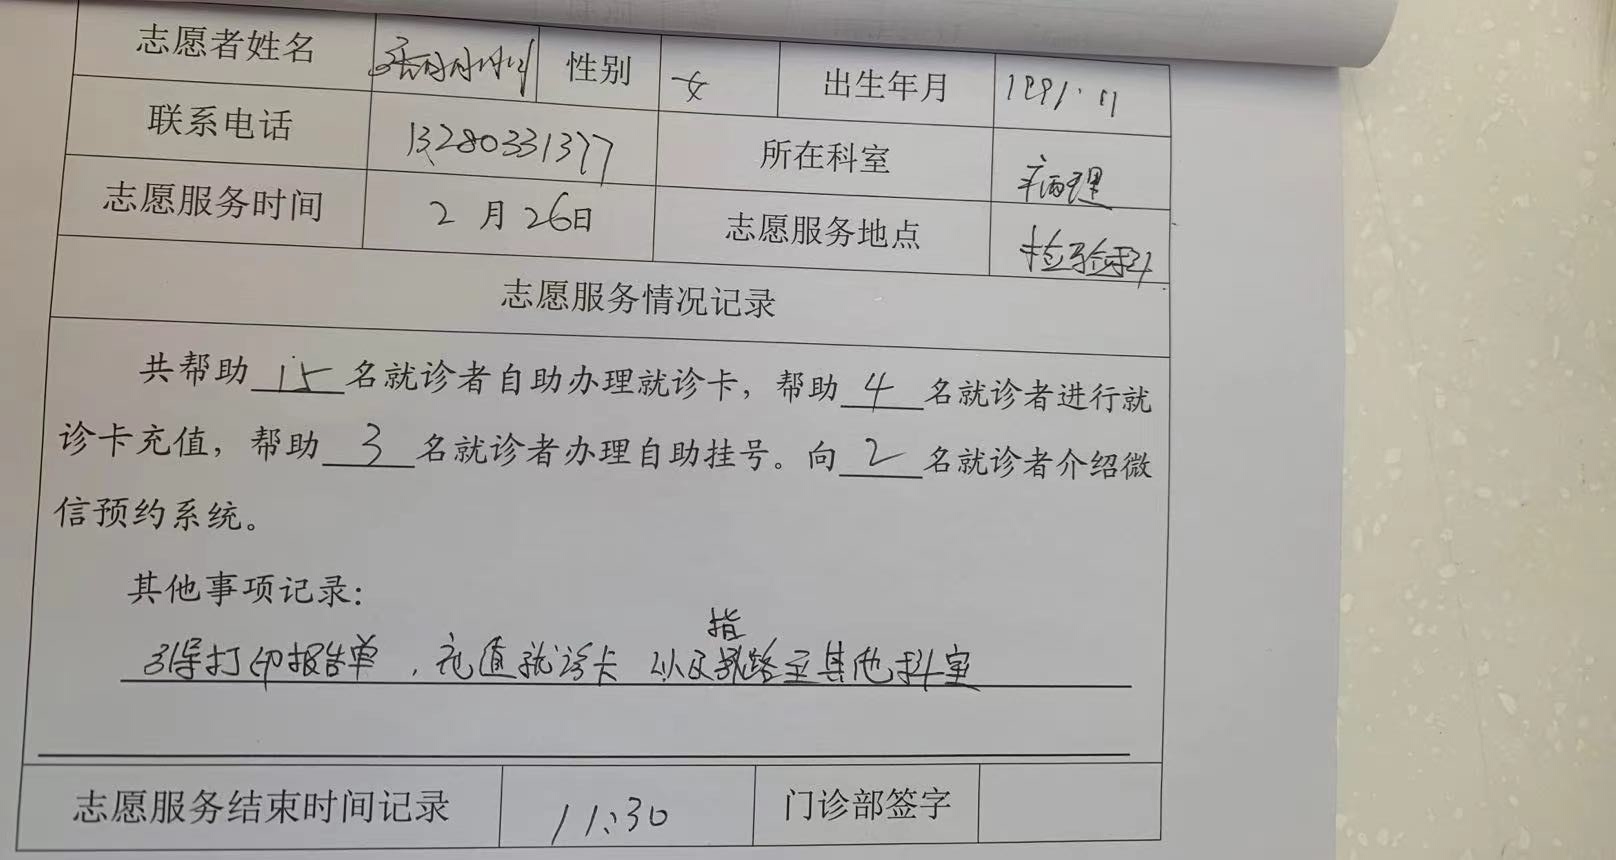 志愿者姓名 性别 女 出生年月 1991.11
联系电话 13280331377 所在科室 病理
志愿服务时间 2月26日 志愿服务地点 检验科
志愿服务情况记录
共帮助15名就诊者自助办理就诊卡，帮助4名就诊者进行就
诊卡充值，帮助3名就诊者办理自助挂号。向2名就诊者介绍微
信预约系统。
其他事项记录：
指
引导打印报告单，充值就诊卡 以及路至其他科室
志愿服务结束时间记录 11:30 门诊部签字